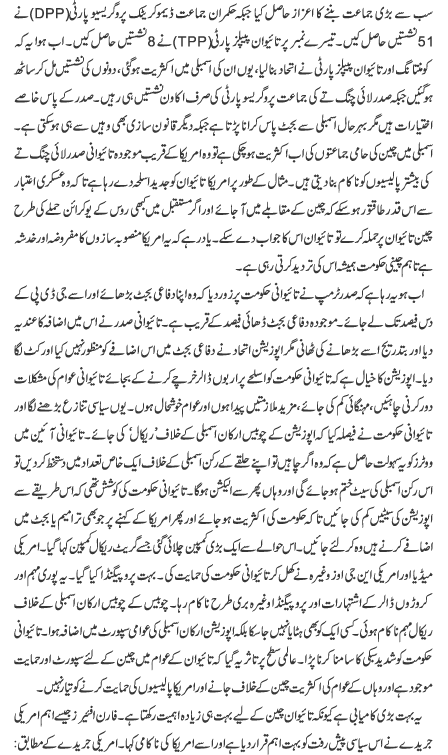 سب سے بڑی جماعت بننے کا اعزاز حاصل کیا جبکہ حکمران جماعت ڈیموکریٹک پروگریسو پارٹی (DPP) نے
51 نشستیں حاصل کیں۔ تیسرے نمبر پر تائیوان پیپلز پارٹی (TPP) نے 8 نشستیں حاصل کیں۔ اب ہوا یہ کہ
کومنتانگ اور تائیوان پیپلز پارٹی نے اتحاد بنا لیا، یوں ان کی اسمبلی میں اکثریت ہو گئی، دونوں کی نشستیں مل کر ساٹھ
ہو گئیں جبکہ صدر لائی چنگ تے کی جماعت پروگریسو پارٹی کی صرف اکاون نشستیں ہی رہیں۔ صدر کے پاس خاصے
اختیارات ہیں مگر بہرحال اسمبلی سے بجٹ پاس کرانا پڑتا ہے جبکہ دیگر قانون سازی بھی وہیں سے ہی ہو سکتی ہے۔
اسمبلی میں چین کی حامی جماعتوں کی اب اکثریت ہو چکی ہے تو وہ امریکا کے قریب موجودہ تائیوانی صدر لائی چنگ تے
کی بیشتر پالیسیوں کو ناکام بنا دیتی ہیں۔ مثال کے طور پر امریکا تائیوان کو جدید اسلحہ دے رہا ہے تا کہ وہ عسکری اعتبار
سے اس قدر طاقتور ہو سکے کہ چین کے مقابلے میں آ جائے اور اگر مستقبل میں کبھی روس کے یوکرائن حملے کی طرح
چین تائیوان پر حملہ کرے تو تائیوان اس کا جواب دے سکے۔ یاد رہے کہ یہ امریکا منصوبہ سازوں کا مفروضہ اور خدشہ
ہے تاہم چینی حکومت ہمیشہ اس کی تردید کرتی رہی ہے۔
اب ہو یہ رہا ہے کہ صدر ٹرمپ نے تائیوانی حکومت پر زور دیا کہ وہ اپنا دفاعی بجٹ بڑھائے اور اسے جی ڈی پی کے
دس فیصد تک لے جائے۔ موجودہ دفاعی بجٹ ڈھائی فیصد کے قریب ہے۔ تائیوانی صدر نے اس میں اضافہ کا عندیہ
دیا اور بتدریج اسے بڑھانے کی ٹھانی مگر اپوزیشن اتحاد نے دفاعی بجٹ میں اس اضافے کو منظور نہیں کیا اور کٹ لگا
دیا۔ اپوزیشن کا خیال ہے کہ تائیوانی حکومت کو اسلحے پر اربوں ڈالر خرچ کرنے کے بجائے تائیوانی عوام کی مشکلات
دور کرنی چاہئیں، مہنگائی کم کی جائے، مزید ملازمتیں پیدا ہوں اور عوام خوشحال ہوں۔ یوں سیاسی تنازع بڑھنے لگا اور
تائیوانی حکومت نے فیصلہ کیا کہ اپوزیشن کے چوبیس ارکان اسمبلی کے خلاف 'ریکال' کی جائے۔ تائیوانی آئین میں
ووٹرز کو یہ سہولت حاصل ہے کہ وہ اگر چاہیں تو اپنے حلقے کے رکن اسمبلی کے خلاف ایک خاص تعداد میں دستخط کر دیں تو
اس رکن اسمبلی کی سیٹ ختم ہو جائے گی اور وہاں پھر سے الیکشن ہوگا۔ تائیوانی حکومت کی کوشش تھی کہ اس طریقے سے
اپوزیشن کی سیٹیں کم کی جائیں تا کہ حکومت کی اکثریت ہو جائے اور پھر امریکا کے کہنے پر جو بھی ترامیم یا بجٹ میں
اضافے کرنے ہیں وہ کر لئے جائیں۔ اس حوالے سے ایک بڑی کمپین چلائی گئی جسے گریٹ ریکال کمپین کہا گیا۔ امریکی
میڈیا اور امریکی این جی اوز وغیرہ نے کھل کر تائیوانی حکومت کی حمایت کی۔ بہت پروپیگنڈا کیا گیا۔ یہ پوری مہم اور
کروڑوں ڈالر کے اشتہارات اور پروپیگنڈا وغیرہ بری طرح ناکام رہا۔ چوبیس کے چوبیس ارکان اسمبلی کے خلاف
ریکال مہم ناکام ہوئی۔ کسی ایک کو بھی ہٹایا نہیں جا سکا بلکہ اپوزیشن ارکان اسمبلی کی عوامی سپورٹ میں اضافہ ہوا۔ تائیوانی
حکومت کو شدید سبکی کا سامنا کرنا پڑا۔ عالمی سطح پر تاثر یہ گیا کہ تائیوان کے عوام میں چین کے لئے سپورٹ اور حمایت
موجود ہے اور وہاں کے عوام کی اکثریت چین کے خلاف جانے اور امریکا پالیسیوں کی حمایت کرنے کو تیار نہیں۔
یہ بہت بڑی کامیابی ہے کیونکہ تائیوان چین کے لیے بہت ہی زیادہ اہمیت رکھتا ہے۔ فارن افیئرز جیسے اہم امریکی
جریدے نے اس سیاسی پیش رفت کو بہت اہم قرار دیا ہے اور اسے امریکا کی ناکامی کہا۔ امریکی جریدے کے مطابق: